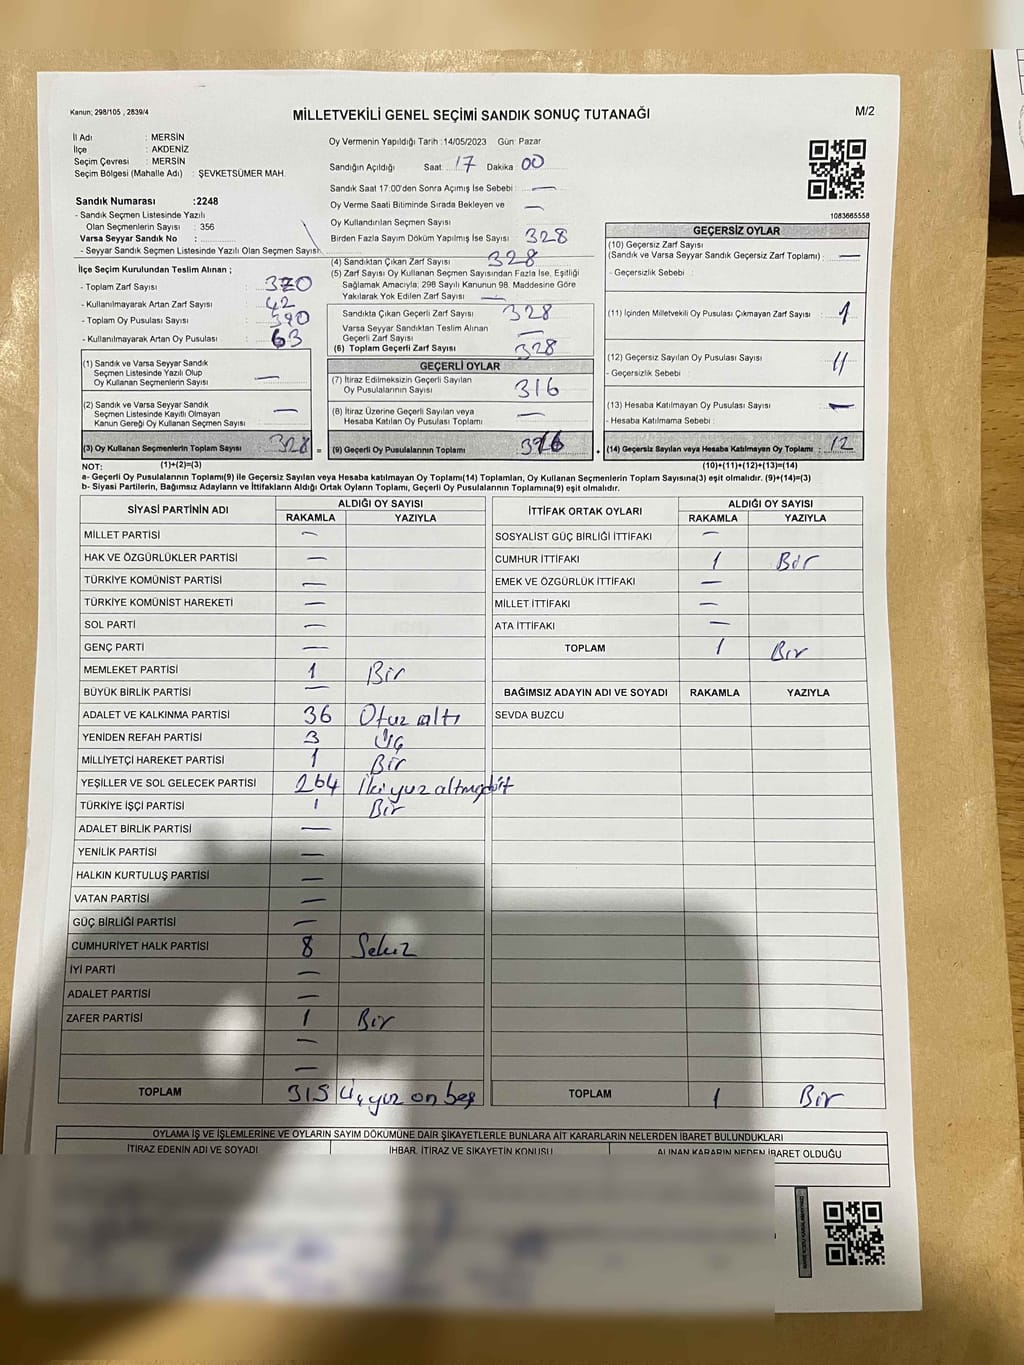 Kanun; 298/105 , 2839/4
MİLLETVEKİLİ GENEL SEÇİMİ SANDIK SONUÇ TUTANAĞI
M/2
İl Adı : MERSİN
İlçe : AKDENİZ
Seçim Çevresi : MERSİN
Seçim Bölgesi (Mahalle Adı) : ŞEVKETSÜMER MAH.
Sandık Numarası :2248
- Sandık Seçmen Listesinde Yazılı
Olan Seçmenlerin Sayısı : 356
Varsa Seyyar Sandık No :
- Seyyar Sandık Seçmen Listesinde Yazılı Olan Seçmen Sayısı
İlçe Seçim Kurulundan Teslim Alınan ;
- Toplam Zarf Sayısı : 370
- Kullanılmayarak Artan Zarf Sayısı : 42
- Toplam Oy Pusulası Sayısı : 390
- Kullanılmayarak Artan Oy Pusulası : 63
(1) Sandık ve Varsa Seyyar Sandık
Seçmen Listesinde Yazılı Olup
Oy Kullanan Seçmenlerin Sayısı : —
(2) Sandık ve Varsa Seyyar Sandık
Seçmen Listesinde Kayıtlı Olmayan
Kanun Gereği Oy Kullanan Seçmen Sayısı : —
(3) Oy Kullanan Seçmenlerin Toplam Sayısı 328
Oy Vermenin Yapıldığı Tarih :14/05/2023 Gün: Pazar
Sandığın Açıldığı Saat: 17 Dakika 00
Sandık Saat 17:00'den Sonra Açımış İse Sebebi : —
Oy Verme Saati Bitiminde Sırada Bekleyen ve —
Oy Kullandırılan Seçmen Sayısı
Birden Fazla Sayım Döküm Yapılmış İse Sayısı : 328
(4) Sandıktan Çıkan Zarf Sayısı : 328
(5) Zarf Sayısı Oy Kullanan Seçmen Sayısından Fazla İse, Eşitliği
Sağlamak Amacıyla; 298 Sayılı Kanunun 98. Maddesine Göre
Yakılarak Yok Edilen Zarf Sayısı : —
Sandıkta Çıkan Geçerli Zarf Sayısı : 328
Varsa Seyyar Sandıktan Teslim Alınan
Geçerli Zarf Sayısı —
(6) Toplam Geçerli Zarf Sayısı : 328
GEÇERLİ OYLAR
(7) İtiraz Edilmeksizin Geçerli Sayılan
Oy Pusulalarının Sayısı : 316
(8) İtiraz Üzerine Geçerli Sayılan veya
Hesaba Katılan Oy Pusulası Toplamı : —
= (9) Geçerli Oy Pusulalarının Toplamı 316
1083665558
GEÇERSİZ OYLAR
(10) Geçersiz Zarf Sayısı
(Sandık ve Varsa Seyyar Sandık Geçersiz Zarf Toplamı) : —
- Geçersizlik Sebebi :
(11) İçinden Milletvekili Oy Pusulası Çıkmayan Zarf Sayısı : 1
(12) Geçersiz Sayılan Oy Pusulası Sayısı : 11
- Geçersizlik Sebebi :
(13) Hesaba Katılmayan Oy Pusulası Sayısı : —
- Hesaba Katılmama Sebebi :
(14) Geçersiz Sayılan veya Hesaba Katılmayan Oy Toplamı : 12
NOT: (1)+(2)=(3) (10)+(11)+(12)+(13)=(14)
a- Geçerli Oy Pusulalarının Toplamı(9) ile Geçersiz Sayılan veya Hesaba katılmayan Oy Toplamı(14) Toplamları, Oy Kullanan Seçmenlerin Toplam Sayısına(3) eşit olmalıdır. (9)+(14)=(3)
b- Siyasi Partilerin, Bağımsız Adayların ve İttifakların Aldığı Ortak Oyların Toplamı, Geçerli Oy Pusulalarının Toplamına(9) eşit olmalıdır.
SİYASİ PARTİNİN ADI ALDIĞI OY SAYISI
RAKAMLA YAZIYLA
MİLLET PARTİSİ —
HAK VE ÖZGÜRLÜKLER PARTİSİ —
TÜRKİYE KOMÜNİST PARTİSİ —
TÜRKİYE KOMÜNİST HAREKETİ —
SOL PARTİ —
GENÇ PARTİ —
MEMLEKET PARTİSİ 1 Bir
BÜYÜK BİRLİK PARTİSİ —
ADALET VE KALKINMA PARTİSİ 36 Otuz altı
YENİDEN REFAH PARTİSİ 3 Üç
MİLLİYETÇİ HAREKET PARTİSİ 1 Bir
YEŞİLLER VE SOL GELECEK PARTİSİ 264 İkiyuz altmışdört
TÜRKİYE İŞÇİ PARTİSİ 1 Bir
ADALET BİRLİK PARTİSİ —
YENİLİK PARTİSİ —
HALKIN KURTULUŞ PARTİSİ —
VATAN PARTİSİ —
GÜÇ BİRLİĞİ PARTİSİ —
CUMHURİYET HALK PARTİSİ 8 Sekiz
İYİ PARTİ —
ADALET PARTİSİ —
ZAFER PARTİSİ 1 Bir
—
—
TOPLAM 315 Üçyuz on beş
İTTİFAK ORTAK OYLARI ALDIĞI OY SAYISI
RAKAMLA YAZIYLA
SOSYALİST GÜÇ BİRLİĞİ İTTİFAKI —
CUMHUR İTTİFAKI 1 Bir
EMEK VE ÖZGÜRLÜK İTTİFAKI —
MİLLET İTTİFAKI —
ATA İTTİFAKI —
TOPLAM 1 Bir
BAĞIMSIZ ADAYIN ADI VE SOYADI RAKAMLA YAZIYLA
SEVDA BUZCU
TOPLAM 1 Bir
OYLAMA İŞ VE İŞLEMLERİNE VE OYLARIN SAYIM DÖKÜMÜNE DAİR ŞİKAYETLERLE BUNLARA AİT KARARLARIN NELERDEN İBARET BULUNDUKLARI
İTİRAZ EDENİN ADI VE SOYADI İHBAR, İTİRAZ VE ŞİKAYETİN KONUSU ALINAN KARARIN NEDEN İBARET OLDUĞU